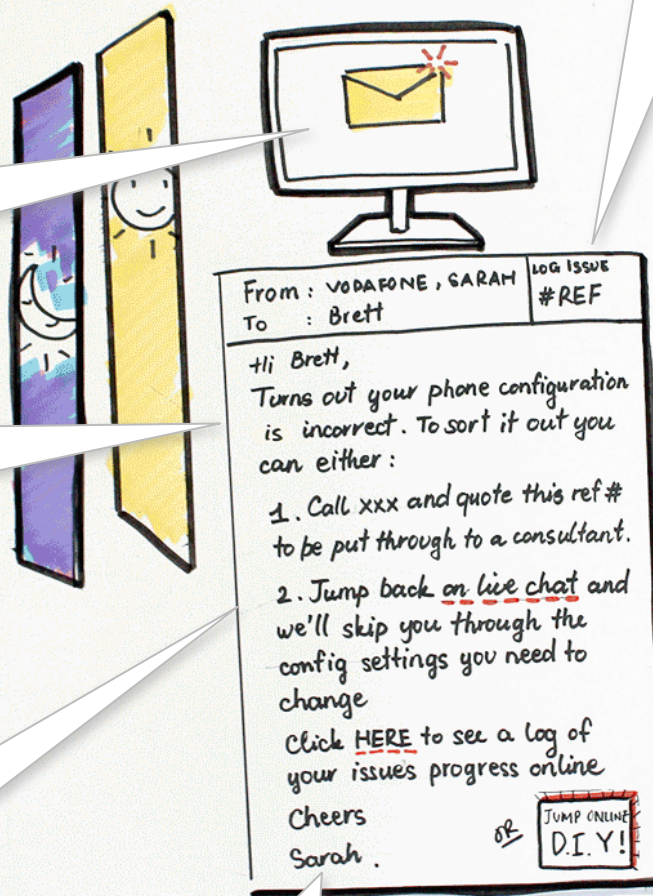 From : VODAFONE, SARAH
To : Brett
LOG ISSUE
#REF
Hi Brett,
Turns out your phone configuration
is incorrect. To sort it out you
can either :
1. Call xxx and quote this ref #
to be put through to a consultant.
2. Jump back on live chat and
we'll skip you through the
config settings you need to
change
Click HERE to see a log of
your issues progress online
Cheers
Sarah .
OR
JUMP ONLINE
D.I.Y!